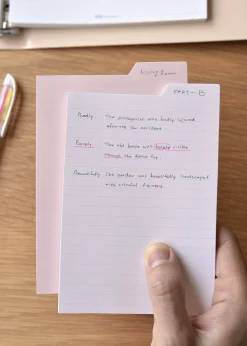 Living Room
PART-B
Badly The protagonist was badly injured
after the car accident.
Barely The old house was barely visible
through the dense fog.
Beautifully The garden was beautifully landscaped
with colorful flowers.